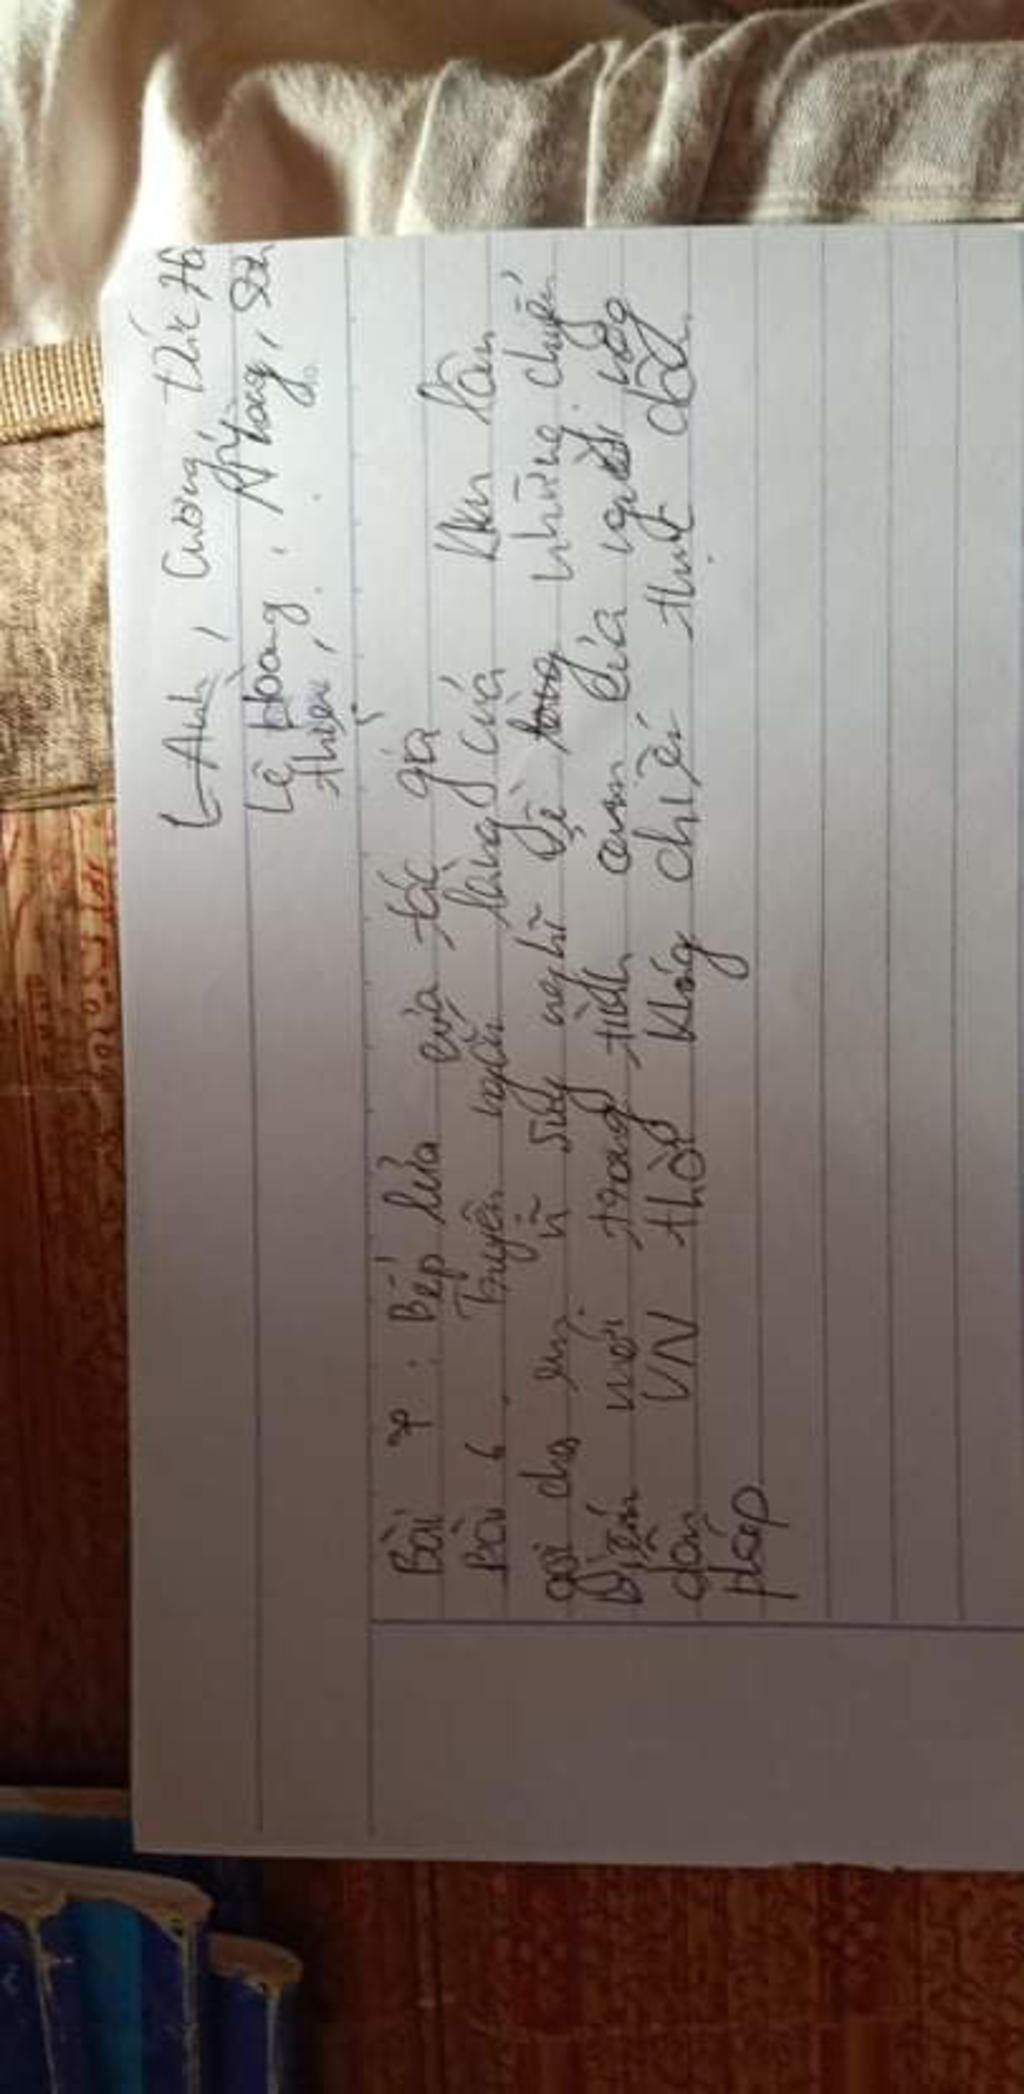 L Anh, Cương, thức
Lê Hoàng,
thiện,
Bài 7 : Bếp lửa của tác giả
Bài 6. Truyện ngắn làng của Kim lân
gợi cho em n~ suy nghĩ gì về những chuyển
biến mới trong tình cảm của người nông
dân VN thời kháng chiến thực dân
pháp